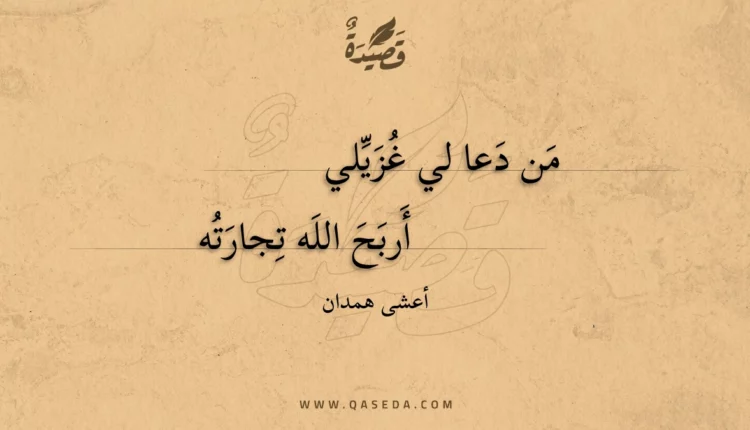 قَصِيدَةٌ
مَن دَعا لي غُزَيِّلي
أَربَحَ اللَه تِجارَتُه
أعشى همدان
WWW.QASEDA.COM